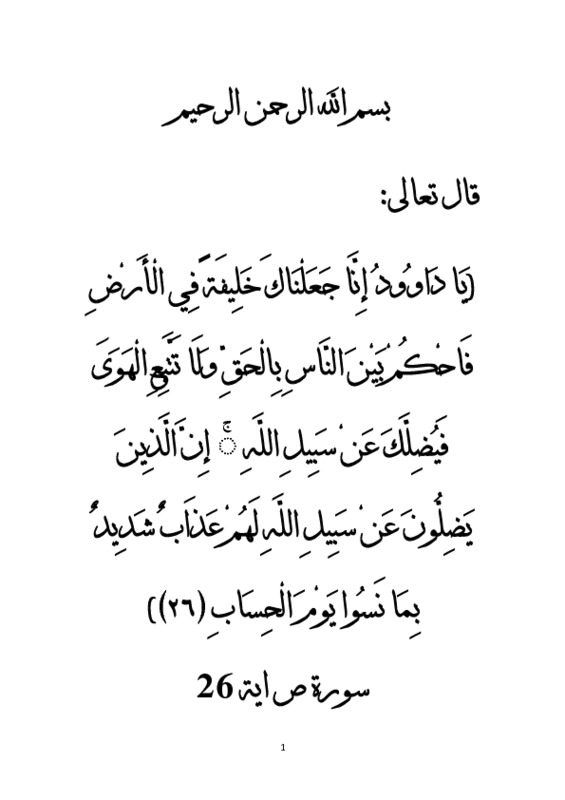 بسم الله الرحمن الرحيم
قال تعالى:
(يَا دَاوُودُ إِنَّا جَعَلْنَاكَ خَلِيفَةً فِي الْأَرْضِ
فَاحْكُمْ بَيْنَ النَّاسِ بِالْحَقِّ وَلَا تَتَّبِعِ الْهَوَىٰ
فَيُضِلَّكَ عَنْ سَبِيلِ اللَّهِ ۚ إِنَّ الَّذِينَ
يَضِلُّونَ عَنْ سَبِيلِ اللَّهِ لَهُمْ عَذَابٌ شَدِيدٌ
بِمَا نَسُوا يَوْمَ الْحِسَابِ (٢٦))
سورة ص اية 26
1